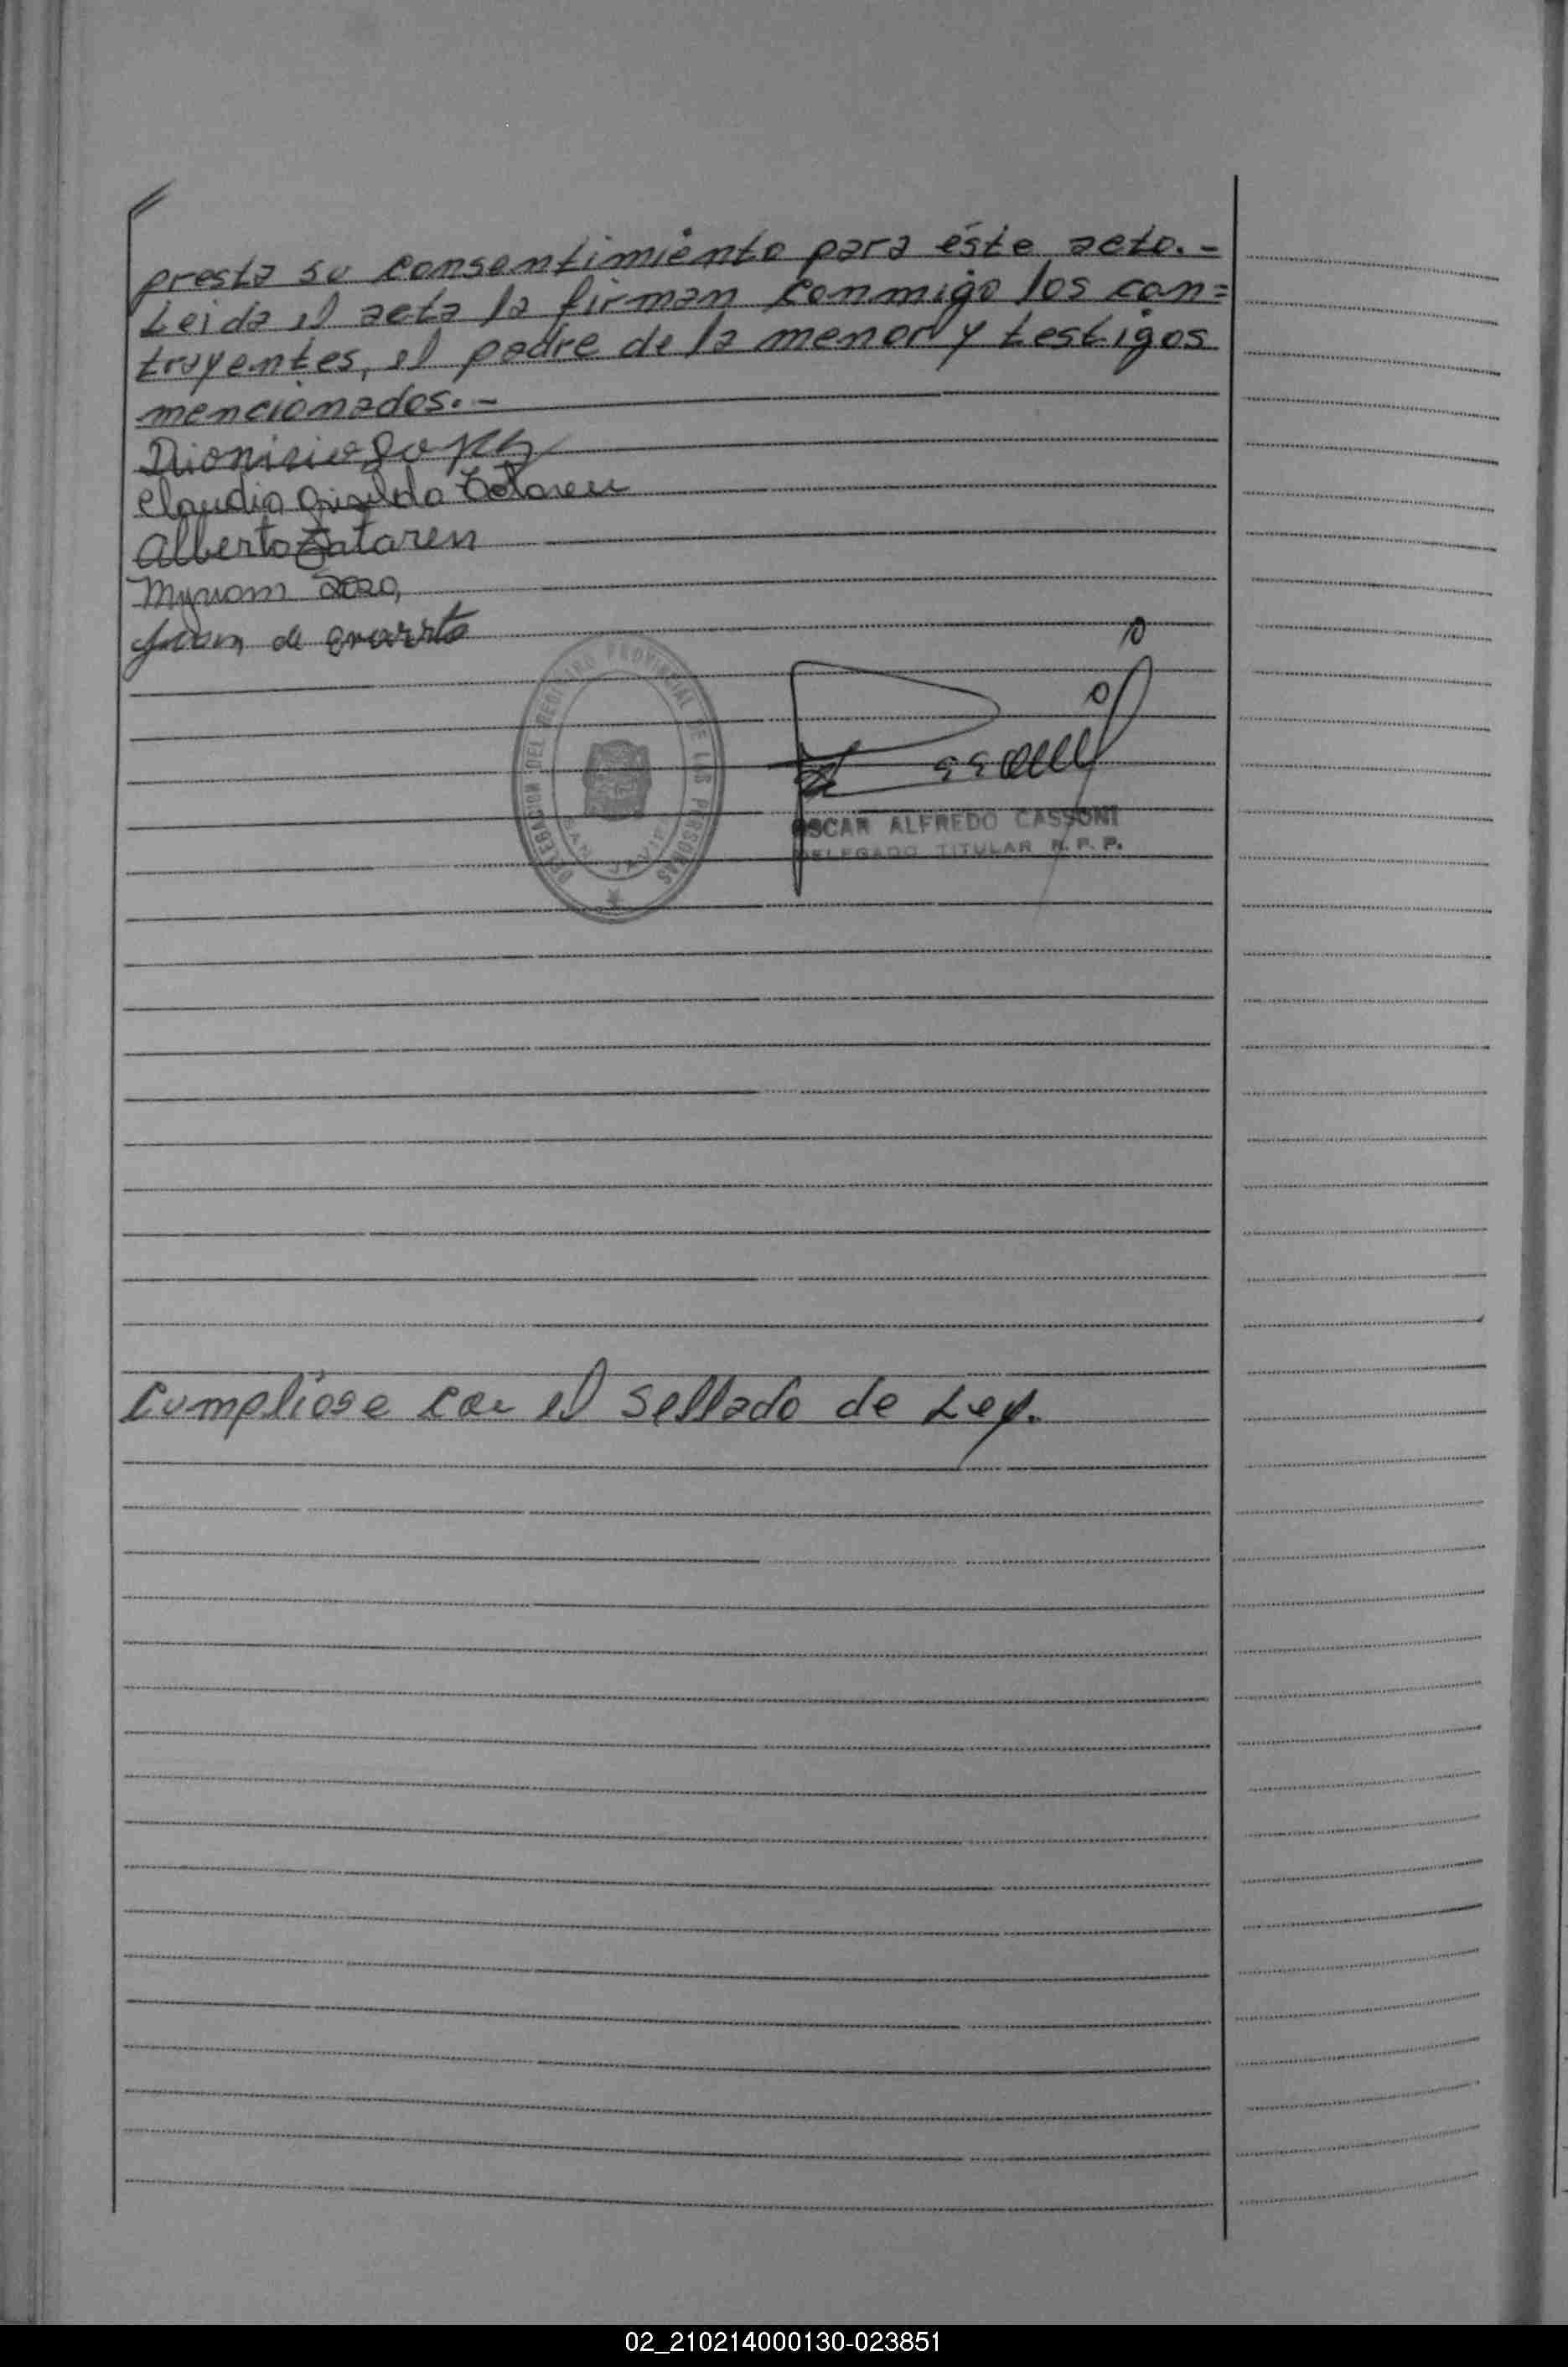 presta su consentimiento para éste acto.-
Leida el acta la firman conmigo los con=
trayentes, el padre de la menor y testigos
mencionados.-
Dionisio Lopez
Claudia Griselda Zataren
Alberto Zataren
Myriam
Juan de
DELEGACION DEL REGISTRO PROVINCIAL DE LAS PERSONAS
SAN JAVIER
OSCAR ALFREDO CASSONI
DELEGADO TITULAR R. P. P.
Cumpliose con el sellado de Ley.
02_210214000130-023851